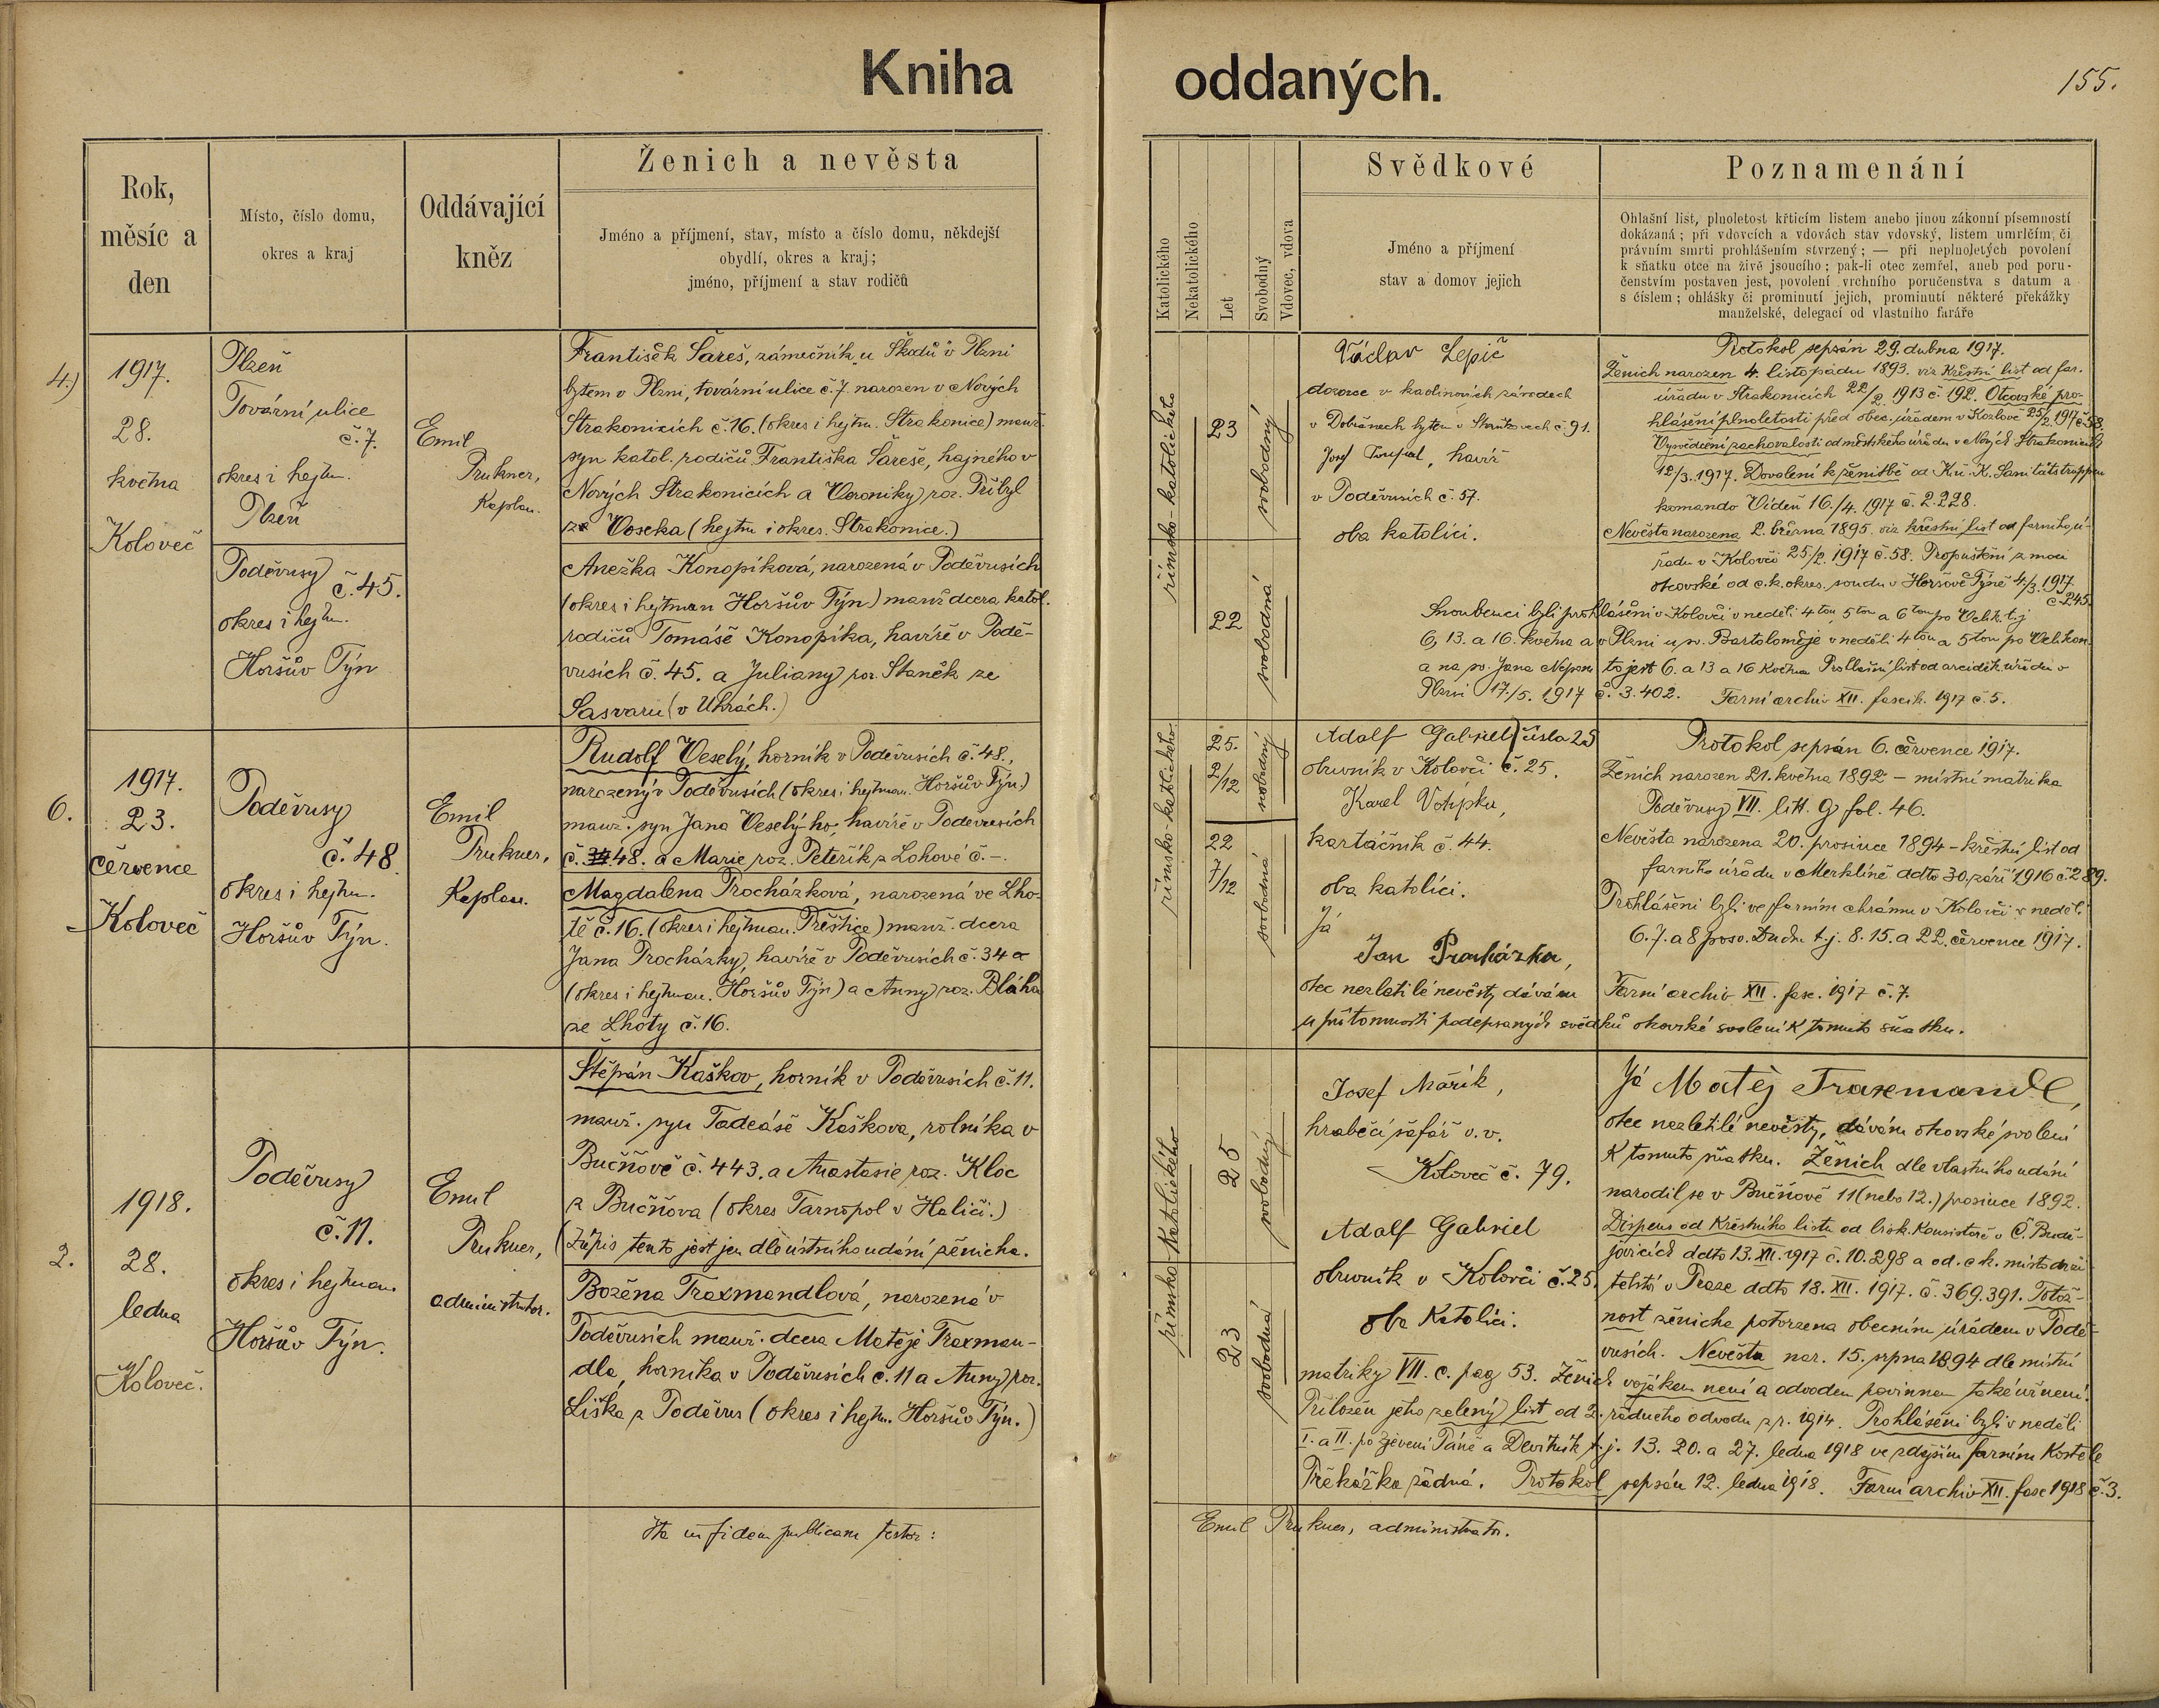 Kniha oddaných.
155.
Rok, měsíc a den
Místo, číslo domu, okres a kraj
Oddávající kněz
Ženich a nevěsta
Jméno a příjmení, stav, místo a číslo domu, někdejší
obydlí, okres a kraj;
jméno, příjmení a stav rodičů
Katolického
Nekatolického
Let
Svobodný
Vdovec, vdova
Svědkové
Jméno a příjmení
stav a domov jejich
Poznamenání
Ohlašní list, plnoletost křticím listem anebo jinou zákonní písemností
dokázaná; při vdovcích a vdovách stav vdovský, listem umrlčím, či
právním smrti prohlášením stvrzený; — při neplnoletých povolení
k sňatku otce na živě jsoucího; pak-li otec zemřel, aneb pod poru-
čenstvím postaven jest, povolení vrchního poručenstva s datum a
s číslem; ohlášky či prominutí jejich, prominutí některé překážky
manželské, delegací od vlastního faráře
4.)
1917.
28.
května
Koloveč
Plzeň
Tovární ulice
č. 7.
okres i hejtm.
Plzeň
Poděvusy
č. 45.
okres i hejtm.
Horšův Týn
Emil
Prukner,
Kaplan.
František Šareš, zámečník u Škodů v Plzni
bytem v Plzni, tovární ulice č. 7. narozen v Nových
Strakonicích č. 16. (okres i hejtm. Strakonice) manž.
syn katol. rodičů Františka Šareše, hajného v
Nových Strakonicích a Veroniky roz. Přibyl
ze Voseka (hejtm i okres. Strakonice.)
Anežka Konopíková, narozená v Poděvusích
(okres i hejtman Horšův Týn) manž dcera katol.
rodičů Tomáše Konopíka, havíře v Podě-
vusích č. 45. a Juliany roz. Staněk ze
Sasvaru (v Uhrách.)
římsko-katolického
23
svobodný
22
svobodná
Václav Lepič
dozorce v kaolinových závodech
v Dobřanech bytem v č. 91.
Josef, havíř
v Poděvusích č. 57.
oba katolíci.
Protokol sepsán 29. dubna 1917.
Ženich narozen 4. listopadu 1893. viz Křestní list od far.
úřadu v Strakonicích 22/2. 1913 č. 192. Otcovské pro-
hlášení plnoletosti před obec. úřadem v Kozlově 25/2. 1917 č. 58.
Vysvědčení zachovalosti od městského úřadu v Nových Strakonicích
12/3. 1917. Dovolení k ženitbě od K.u.K. Sanitätstruppen
komando Vídeň 16./4. 1917 č. 2.228.
Nevěsta narozena 2. března 1895 viz křestní list od farního ú-
řadu v Kolovči 25./2. 1917 č. 58. Propuštění z moci
otcovské od c.k. okres. soudu v Horšově Týně 4./3. 1917.
č. 245.
Snoubenci byli prohlášeni v Kolovči v neděli 4tou, 5tou a 6tou po Velik. t.j
6, 13. a 16. května a v Plzni u sv. Bartoloměje v neděli 4tou a 5tou po Velikon.
a na sv. Jana Nepom. to jest 6. a 13 a 16 Května Prohlašní list od arciděk. úřadu v
Plzni 17./5. 1917 č. 3.402. Farní archiv XII. fascik. 1917 č. 5.
6.
1917.
23.
července
Koloveč
Poděvusy
č. 48
okres i hejtm.
Horšův Týn.
Emil
Prukner,
Kaplan.
Rudolf Veselý, horník v Poděvusích č. 48.,
narozený v Poděvusích (okres i hejtman. Horšův Týn)
manž. syn Jana Veselý-ho, havíře v Poděvusích
č. 48. a Marie roz. Peteřík z Lohové č. -.
Magdalena Procházková, narozená ve Lho-
tě č. 16. (okres i hejtman. Přeštice) manž. dcera
Jana Procházky, havíře v Poděvusích č. 34 a
(okres i hejtman. Horšův Týn) a Anny roz. Bláha
ze Lhoty č. 16.
římsko-katolického
25.
2/12
svobodný
22
7/12
svobodná
Adolf Gabriel čísla 25
obuvník v Kolovči č. 25.
Karel Votýpka,
kartáčník č. 44.
oba katolíci.
Já
Jan Procházka,
otec nezletilé nevěsty dávám
u přítomnosti podepsaných svědků otcovské svolení k tomuto sňatku.
Protokol sepsán 6. července 1917.
Ženich narozen 21. května 1892 – místní matrika
Poděvusy VII. litt. G fol. 46.
Nevěsta narozena 20. prosince 1894 – křestní list od
farního úřadu v Merklíně ddto 30. září 1916 č. 289.
Prohlášeni byli ve farním chrámu v Kolovči v neděli
6. 7. a 8 po sv. Duchu t.j. 8. 15. a 22. července 1917.
Farní archiv XII. fasc. 1917 č. 7.
2.
1918.
28.
ledna
Koloveč.
Poděvusy
č. 11.
okres i hejtman.
Horšův Týn.
Emil
Prukner,
administrator.
Štěpán Kaškov, horník v Poděvusích č. 11.
manž. syn Tadeáše Kaškova, rolníka v
Bučňově č. 443. a Anastasie roz. Kloc
z Bučňova (okres Tarnopol v Haliči.)
(Zápis tento jest jen dle ústního udání ženicha.
Božena Traxmandlová, narozená v
Poděvusích manž. dcera Matěje Traxman-
dla, horníka v Poděvusích č. 11 a Anny roz.
Liška z Poděvus (okres i hejtm. Horšův Týn.)
římsko katolického
25
svobodný
23
svobodná
Josef Mařík,
hraběcí šafář v.v.
Koloveč č. 79.
Adolf Gabriel
obuvník v Kolovči č. 25.
oba Katolíci.
Já Matěj Traxmandl,
otec nezletilé nevěsty, dávám otcovské svolení
K tomuto sňatku. Ženich dle vlastního udání
narodil se v Bučňově 11 (nebo 12.) prosince 1892.
Dispens od Křestního listu od bisk. Konsistoře v Č. Budě-
jovicích ddto 13. XII. 1917 č. 10.298 a od c.k. místodrži-
telství v Praze ddto 18. XII. 1917. č. 369.391. Totož-
nost ženicha potvrzena obecním úřadem v Podě-
vusích. Nevěsta nar. 15. srpna 1894 dle místní
matriky VII. C. pag 53. Ženich vojákem není a odvodem povinnen také už není.
Přiložen jeho zelený list od 2. řádného odvodu z r. 1914. Prohlášeni byli v neděli
I. a II. po Zjevení Páně a Devítník t.j. 13. 20. a 27. ledna 1918 ve zdejším farním Kostele
Překážka žádná. Protokol sepsán 12. ledna 1918. Farní archiv XII. fasc 1918 č. 3.
Ita in fidem publicam testor:
Emil Prukner, administrator.